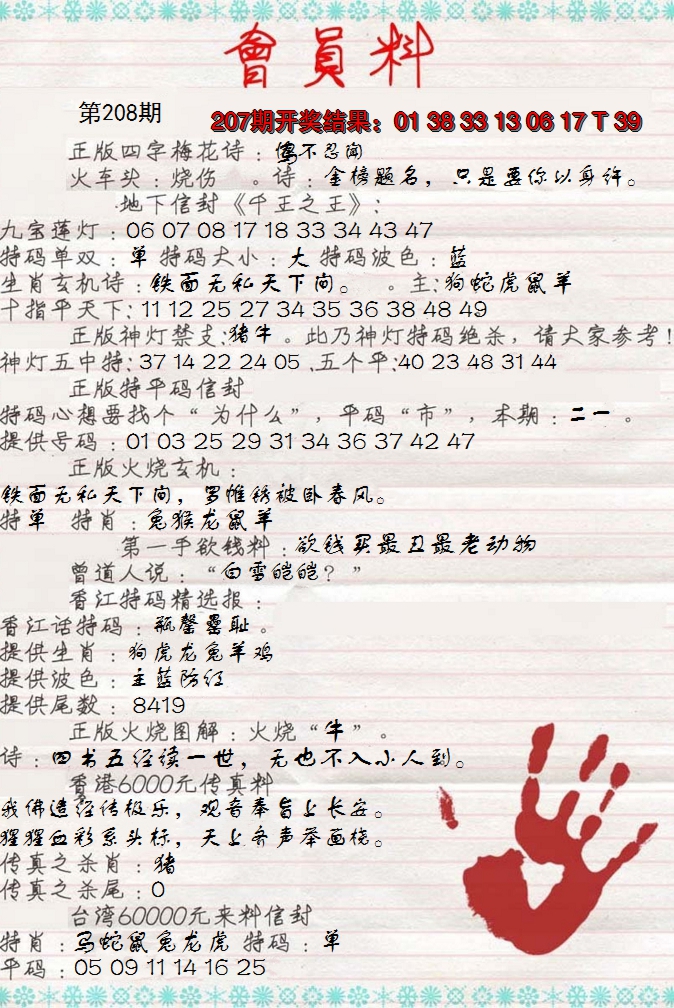 會員料
第208期
207期开奖结果：01 38 33 13 06 17 T 39
正版四字梅花诗：惨不忍闻
火车头：烧伤 。诗：金榜题名，只是要你以身许。
地下信封《千王之王》：
九宝莲灯：06 07 08 17 18 33 34 43 47
特码单双：单 特码大小：大 特码波色：蓝
生肖玄机诗：铁面无私天下问。 。主：狗蛇虎鼠羊
十指平天下：11 12 25 27 34 35 36 38 48 49
正版神灯禁支：猪牛 。此乃神灯特码绝杀，请大家参考！
神灯五中特：37 14 22 24 05 .五个平：40 23 48 31 44
正版特平码信封
特码心想要找个“为什么”，平码“市”，本期：二一 。
提供号码：01 03 25 29 31 34 36 37 42 47
正版火烧玄机：
铁面无私天下问，罗帷绣被卧春风。
特单 特肖：兔猴龙鼠羊
第一手欲钱料：欲钱买最丑最老动物
曾道人说：“白雪皑皑？”
香江特码精选报：
香江话特码：瓶罄罍耻 。
提供生肖：狗虎龙兔羊鸡
提供波色：主蓝防红
提供尾数：8419
正版火烧图解：火烧“牛”。
诗：四书五经读一世，无也不入小人到。
香港6000元传真料
我佛造经传极乐，观音奉旨上长安。
猩猩血彩系头标，天上齐声举画桡。
传真之杀肖：猪
传真之杀尾：0
台湾60000元来料信封
特肖：马蛇鼠兔龙虎 特码：单
平码：05 09 11 14 16 25